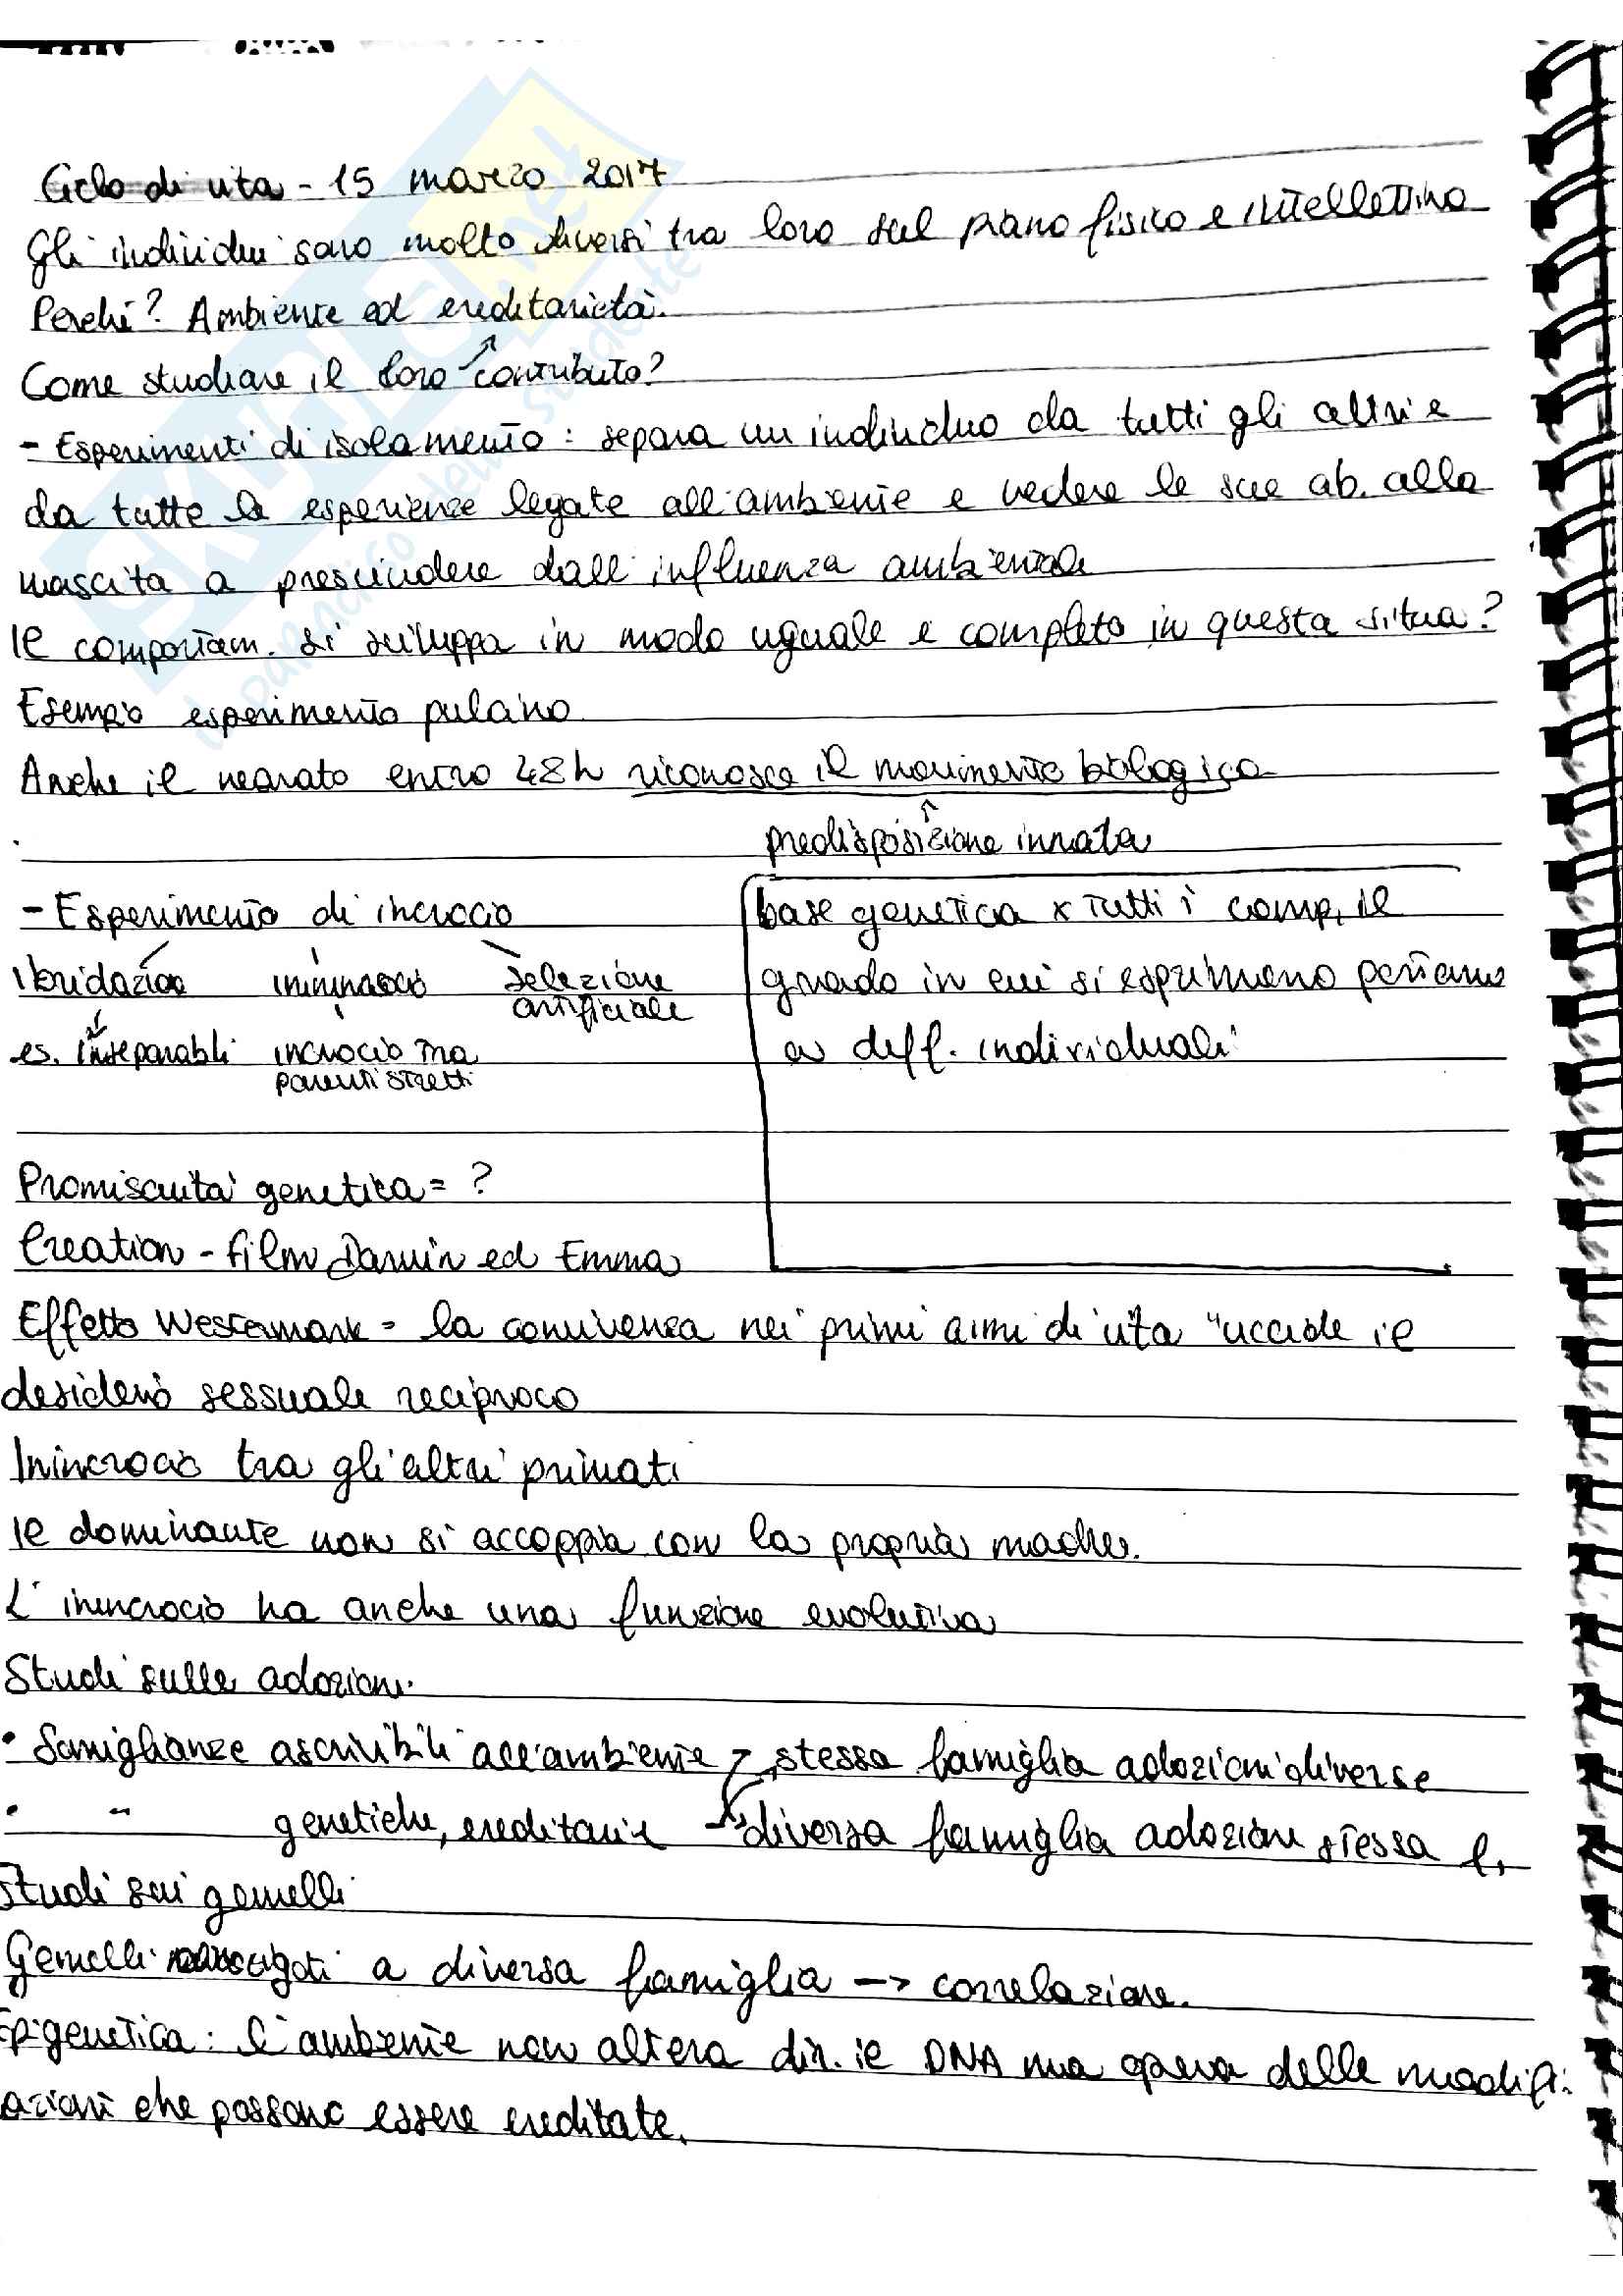 Ciclo di vita - 15 marzo 2017
Gli individui sono molto diversi tra loro sul piano fisico e intellettivo
Perché? Ambiente ed ereditarietà.
Come studiare il loro contributo?
- Esperimenti di isolamento: separa un individuo da tutti gli altri e
da tutte le esperienze legate all'ambiente e vedere le sue ab. alla
nascita a prescindere dall'influenza ambientale
Il comportam. si sviluppa in modo uguale e completo in questa situa?
Esempio esperimento pulcino
Anche il neonato entro 48h riconosce il movimento biologico
predisposizione innata
- Esperimento di incrocio
ibridazione inincrocio selezione
artificiale
es. inseparabili incrocio tra
parenti stretti
base genetica x tutti i comp, il
grado in cui si esprimono portano
a diff. individuali
Promiscuità genetica = ?
Creation - film Darwin ed Emma
Effetto Westermark = la convivenza nei primi anni di vita "uccide il
desiderio sessuale reciproco
Inincrocio tra gli altri primati
Il dominante non si accoppia con la propria madre.
L'inincrocio ha anche una funzione evolutiva
Studi sulle adozioni.
• Somiglianze ascrivibili all'ambiente → stessa famiglia adozioni diverse
• " genetiche, ereditarie → diversa famiglia adozione stessa f.
Studi sui gemelli
Gemelli a diversa famiglia → correlazione.
Epigenetica: l'ambiente non altera dir. il DNA ma opera delle modifi
azioni che possono essere ereditate.
SKUOLA.net
il paradiso dello studente